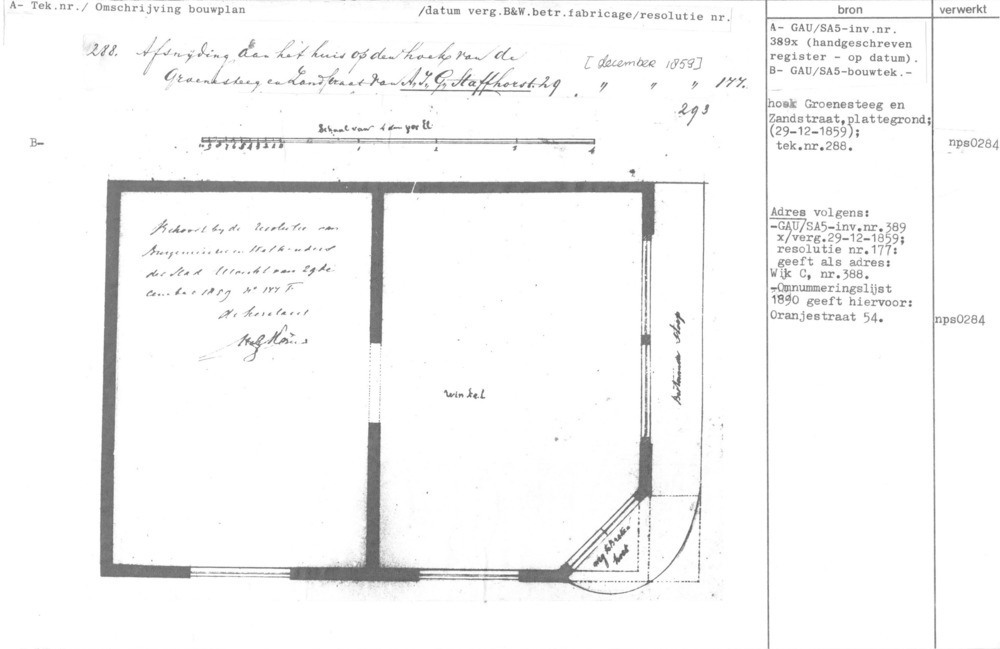 A- Tek.nr./ Omschrijving bouwplan /datum verg.B&W.betr.fabricage/resolutie nr.
288. Afsnijding aan het huis op den hoek van de
Groenesteeg en Zandstraat van A. J. G. Staffhorst. 29 [december 1859] " " " 177.
293
B-
Schaal van 1 dm per El
1 2 3 4
Behoort bij de resolutie van
Burgemeester en Wethouders
der Stad Utrecht van 29 de
cember 1859 No 177 F.
de
winkel
stoep
hoek
bron
A- GAU/SA5-inv.nr.
389x (handgeschreven
register - op datum).
B- GAU/SA5-bouwtek.-
hoek Groenesteeg en
Zandstraat,plattegrond;
(29-12-1859);
tek.nr.288.
Adres volgens:
-GAU/SA5-inv.nr.389
x/verg.29-12-1859;
resolutie nr.177:
geeft als adres:
Wijk C, nr.388.
-Omnummeringslijst
1890 geeft hiervoor:
Oranjestraat 54.
verwerkt
nps0284
nps0284